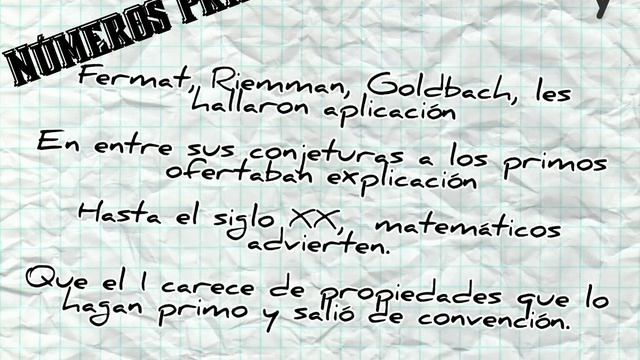 NÚMEROS
Fermat, Riemman, Goldbach, les
hallaron aplicación
En entre sus conjeturas a los primos
ofertaban explicación
Hasta el siglo XX, matemáticos
advierten.
Que el 1 carece de propiedades que lo
hagan primo y salió de convención.